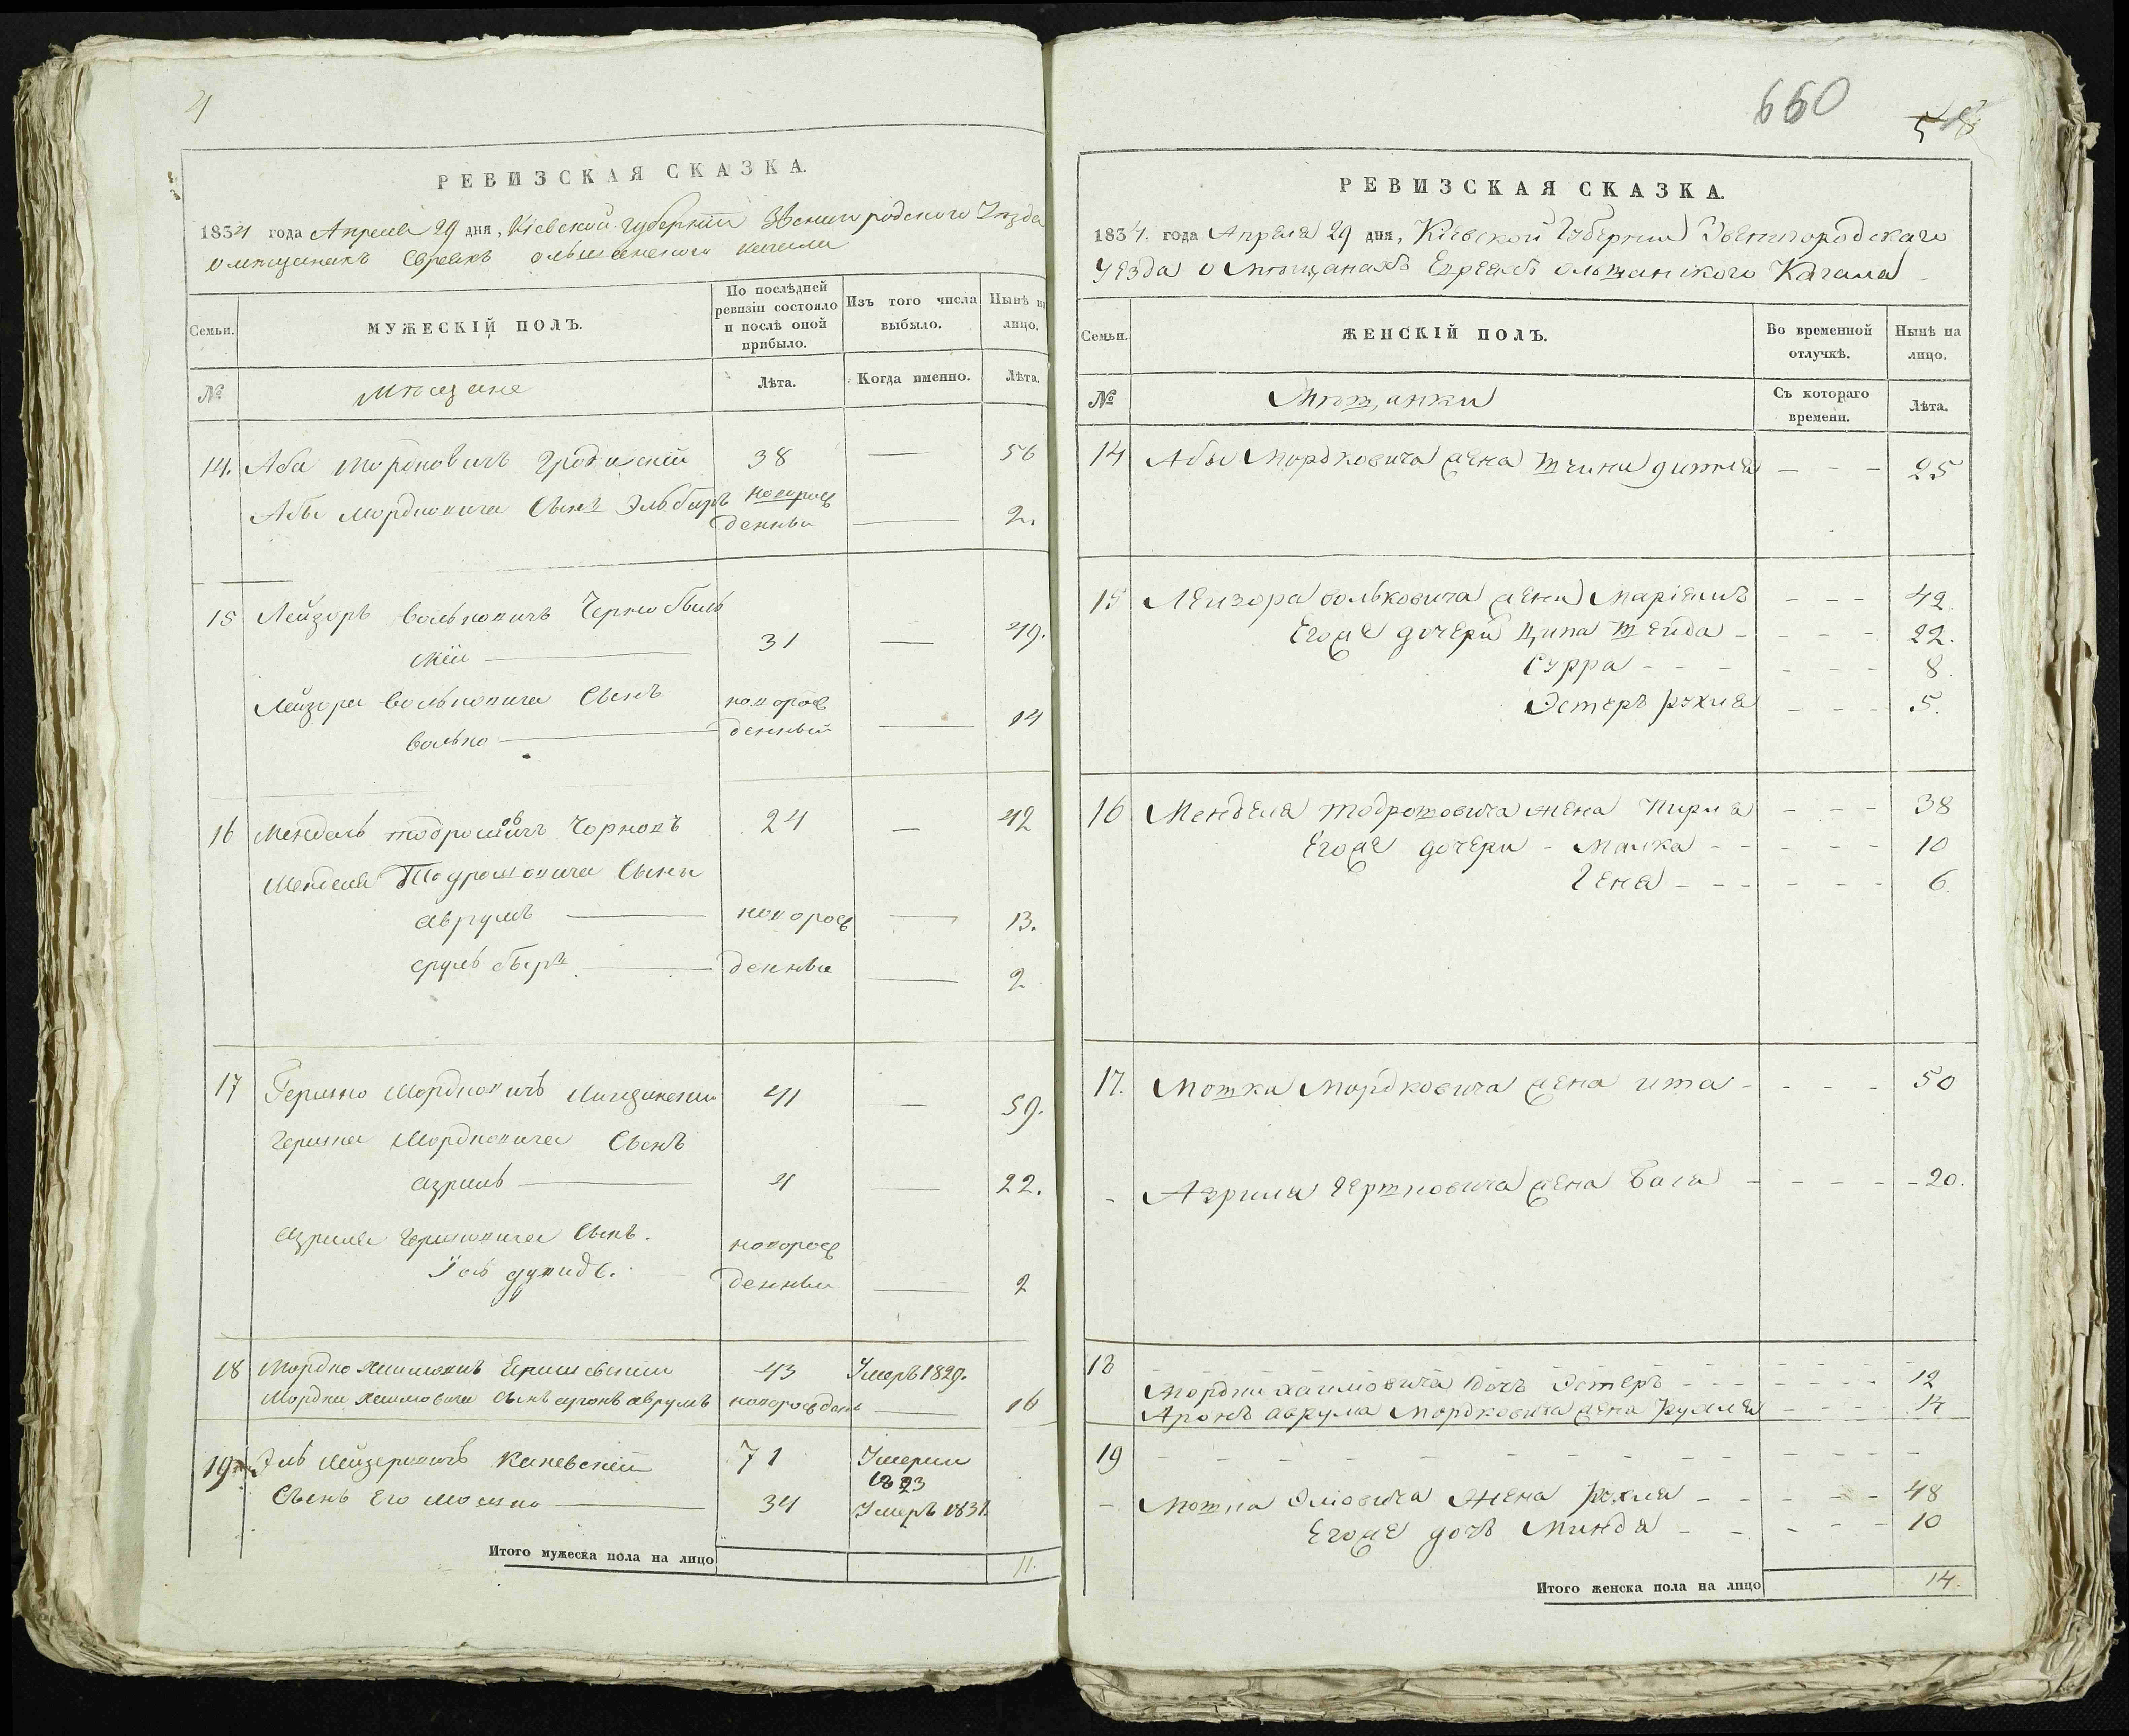 4
РЕВИЗСКАЯ СКАЗКА.
1834 года Апреля 29 дня, Кіевской губерніи Звенигородского Уезда
о мещанахъ Евреяхъ ольшанского кагала
Семьи. МУЖЕСКІЙ ПОЛЪ. По послѣдней ревизіи состояло и послѣ оной прибыло. Изъ того числа выбыло. Нынѣ на лицо.
№ мещане Лѣта. Когда именно. Лѣта.
14. Аба Мордковичъ Гродискій 38 — 56
Абы Мордковича Сынъ Эль беръ новорож
денный — 2.
15 Лейзоръ Вольковичъ Чернобыль
скій — 31 — 49.
Лейзора Вольковича Сынъ новорож
Волько — денный — 14
16 Мендель Тодросовичъ Чорновъ 24 — 42
Менделя Тодросовича Сыны
аврумъ — новорож — 13.
сруль беръ — денные — 2
17 Гершко Мордковичъ 41 — 59.
Гершка Мордковича Сынъ
азриль — 4 — 22.
Азриля Гершковича Сынъ. новорож
Іось дувидъ. денный — 2
18 Мордко Хаимовичъ 43 Умеръ 1829.
Мордки Хаимовича Сынъ аронъ аврумъ новорожден — 16
19. Эль Лейзеровичъ Каневскій 71 Умеръ
1823
Сынъ Его Мошко — 34 Умеръ 1831.
Итого мужеска пола на лицо 11.
660
РЕВИЗСКАЯ СКАЗКА.
1834. года Апреля 29 дня, Кіевской Губерніи Звенигородскаго
Уезда о мещанахъ Евреяхъ ольшанского Кагала
Семьи. ЖЕНСКІЙ ПОЛЪ. Во временной отлучкѣ. Нынѣ на лицо.
№ Мещанки Съ котораго времени. Лѣта.
14 Абы Мордковича жена - - - 25
15 Лейзора Вольковича жена Маріемъ - - - 42
Егоже дочери Ципа Шейда - - - - 22.
Сурра - - - - - - 8.
Эстеръ рухля - - - 5.
16 Менделя Тодрошовича жена Перля - - - 38
Егоже дочери - Малка - - - - - 10
Гена - - - - - - 6.
17. Мошка Мордковича жена ита - - - - 50
- Азриля Гершковича жена Бася - - - - - 20.
18 - - - - - - - - - - - - - -
Мордки хаимовича дочъ Эстеръ - - - - - - - 12
Аронъ аврума Мордковича жена Рухля - - - - 14
19 - - - - - - - - - - - - - -
- Мошка Эліовича жена Рухля - - - - - 48
Егоже дочъ Минда - - - - - 10
Итого женска пола на лицо 14.